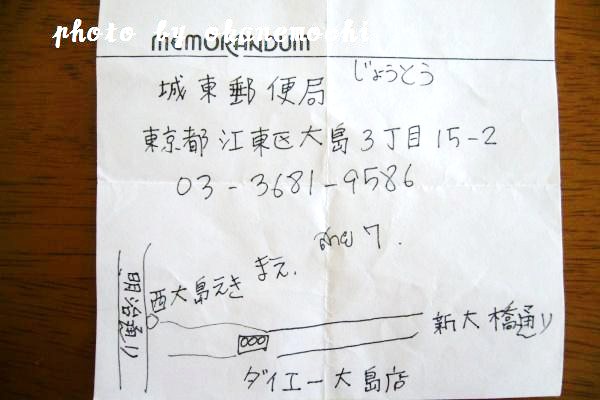 MEMORANDUM
じょうとう
城東郵便局
東京都江東区大島3丁目15-2
03-3681-9586
まえ.
西大島えき
明治通り
新大橋通り
ダイエー大島店